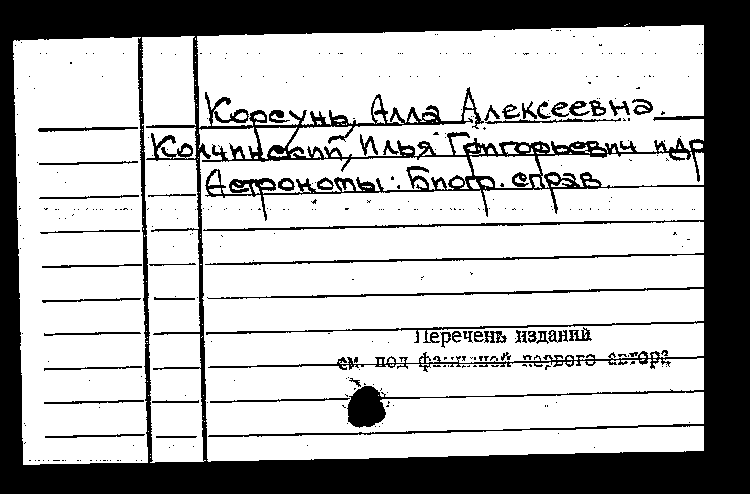 Корсунь, Алла Алексеевна.
Колчинский, Илья Григорьевич и др
Астрономы: Биогр. справ.
Перечень изданий
см. под фамилией первого автора